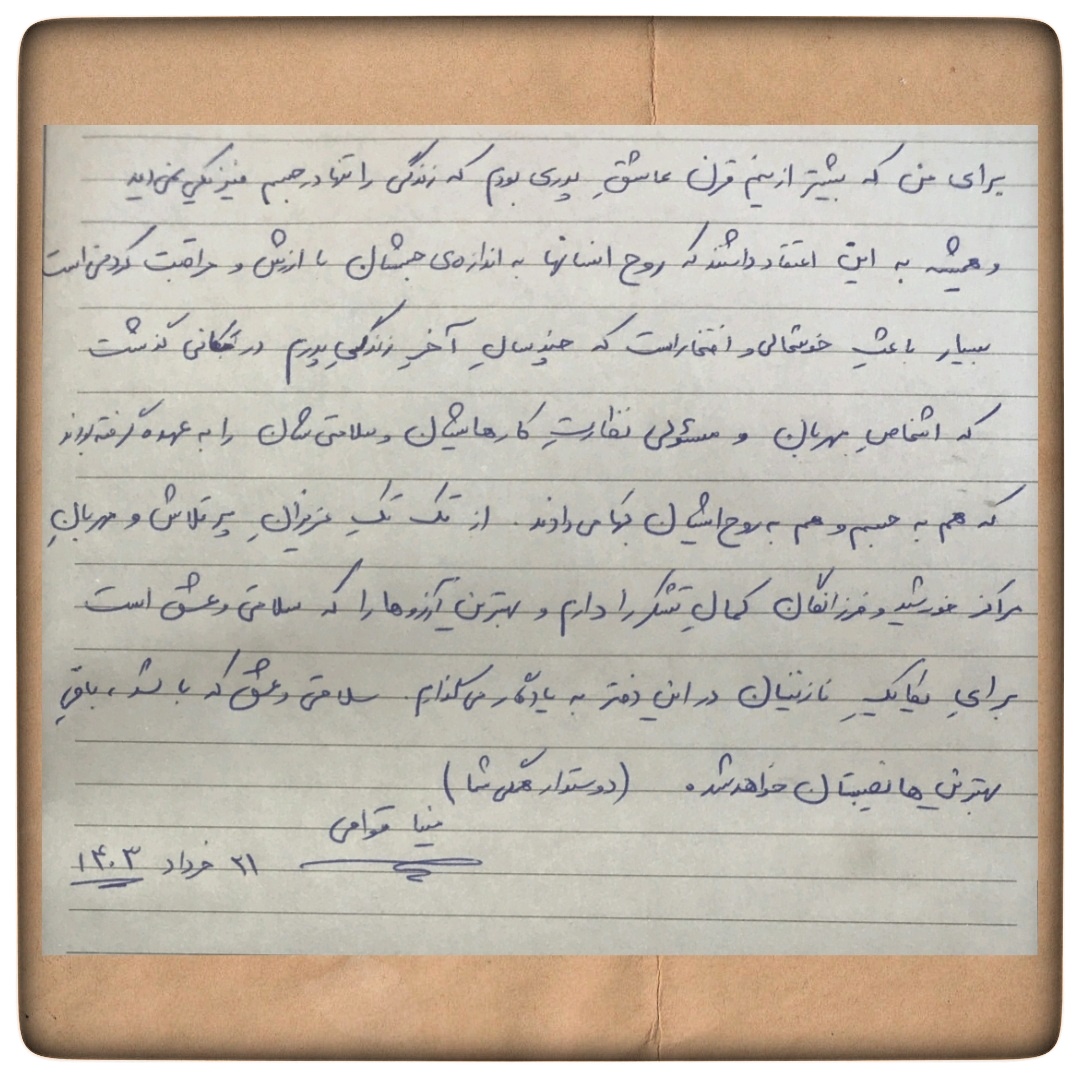 برای من که بیشتر از نیم قرن عاشقِ پدری بودم که زندگی را تنها در جسم فیزیکی نمی‌دید
و همیشه به این اعتقاد داشتند که روح انسانها به اندازه‌ی جسمشان با ارزش و مراقبت کردنی است
بسیار باعثِ خوشحالی و افتخار است که چند سالِ آخرِ زندگیِ پدرم در مکانی گذشت
که اشخاصِ مهربان و مسئولی نظارتِ کارهایشان و سلامتی‌شان را به عهده گرفته بودند
که هم به جسم و هم به روح ایشان بها می‌دادند. از تک تکِ عزیزانِ پر تلاش و مهربانِ
مراکز خورشید و فرزانگان کمالِ تشکر را دارم و بهترین آرزوها را که سلامتی و عشق است
برایِ یکایکِ نازنینان در این دفتر به یادگار می‌گذارم. سلامتی و عشق که باشد، باقیِ
بهترین‌ها نصیبتان خواهد شد. (دوستدار همگی شما)
قوامی
۲۱ خرداد ۱۴۰۳